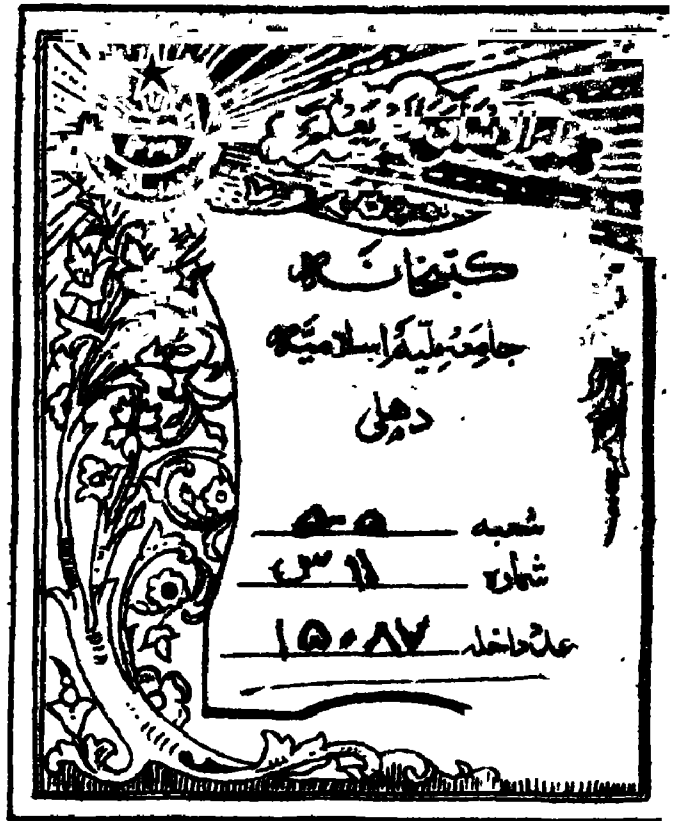 علم الانسان ما لم یعلم
کتبخانہ
جامعہ ملیہ اسلامیہ
دھلی
شعبہ ۵۰۵
شمارہ ۱۱ س
داخلہ ۱۵۰۸۷